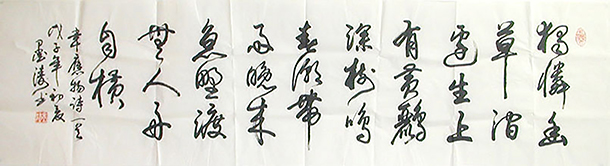 獨憐幽
草澗
邊生上
有黃鸝
深樹鳴
春潮帶
雨晚來
急野渡
無人舟
自橫
韋應物詩一首
戊子年初夏
墨濤书